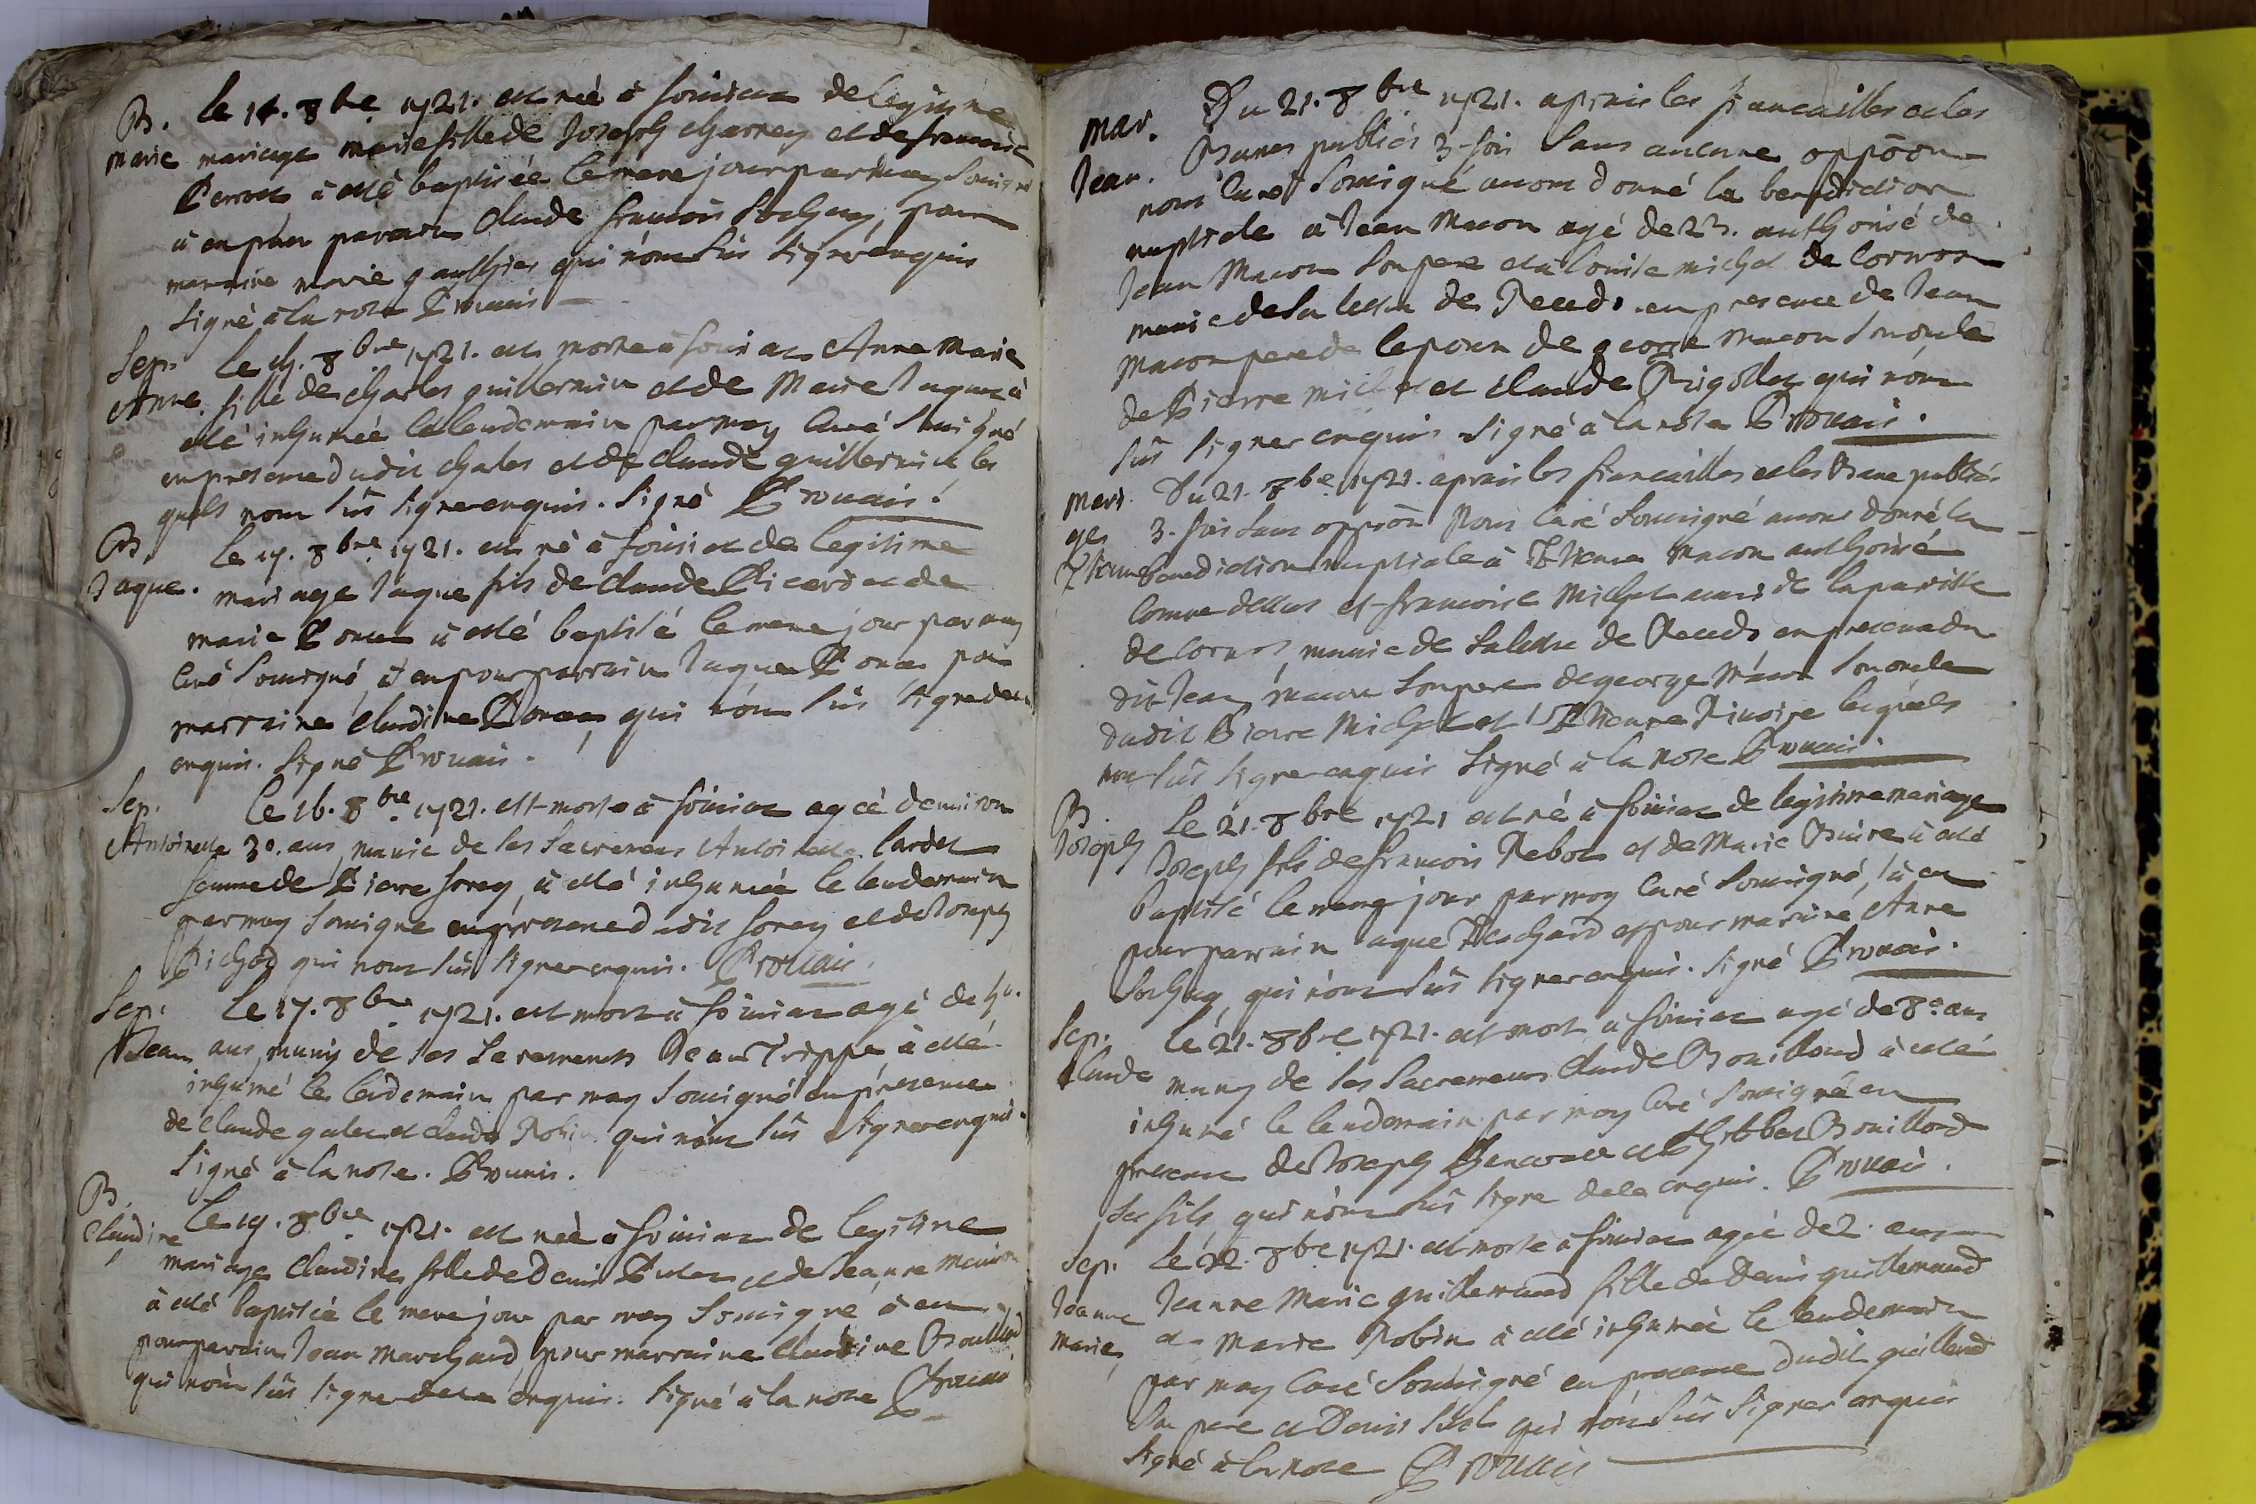 B. le 14. 8bre 1721. est née à foissiat de legitime
Marie mariage marie fille de Joseph charney et de francoise
Perret à esté baptisée le meme jour par moy souigné
à eu pour parrain Claude francois Sochay, pour
marraine marie gauthier qui n'ont sus signé enquis
signé à la note Prouais
Sep. le 8bre 1721. est morte à foissiat Anne Marie
Anne fille de Charles guillermin et de Marie Jaquet à
esté inhumée le lendemain par moy curé souigné
en presence dudit charles et de claude guillermin les
quels nont sus signer enquis. signé Prouais.
B. le 8bre 1721. est né à foissiat de legitime
Jaque. mariage Jaque fils de claude Picard et de
marie Ponce à esté baptisé le meme jour par moy
curé souigné, à eu pour parrain Jaque Ponce pour
marraine claudine Ponce qui n'ont sus signer de ce
enquis. signé Prouais.
Sep. le 16. 8bre 1721. est morte à foissiat agée d'environ
Antoinette 30. ans, munie de ses sacremens Antoinette
femme de Pierre forey, à esté inhumée le lendemain
par moy souigne en presence dudit forey et de Joseph
Pichod qui nont sus signer enquis. Prouais.
Sep. Le 17. 8bre 1721. est mort à foissiat agé de
Jean ans, muny de ses sacremens Jean Trippe à esté
inhumé le lendemain par moy souigné en presence
de claude et claude Robin qui n'ont sus signer enquis.
signé à la note. Prouais.
B. Le 19. 8bre 1721. est née à foissiat de legitime
Claudine mariage Claudine fille de Denis et de Jeanne
à esté baptisée le meme jour par moy souigné à eu
pour parrain Jean Marchand pour marraine claudine Bouillard
qui n'ont sus signer de ce enquis. signé à la note Prouais
Mar. Du 21. 8bre 1721. apres les fiancailles et les
Jean. Banns publiés 3 fois sans aucune oppõon
nous curé souigné avons donné la benediction
nuptiale à Jean Macon agé de authorisé de
Jean Macon son pere et à Louise michel de Cormoz
munie de sa lettre de Recedo en presence de Jean
Macon pere de lepoux de george macon s'noncle
de Pierre michel et claude Rigollet qui n'ont
sus signer enquis signé à la note Prouais.
Mari Du 21. 8bre 1721. apres les fiancailles et les Bans publiés
ges 3. fois sans oppõon Nous curé souigné avons donné la
Etienne benediction nuptiale à Etienne Macon authorisé
comme dessus et francoise Michel aussi de la paroisse
de Cormoz, munie de sa lettre de Recedo en presence du
dit Jean macon son pere de george Macon son oncle
dudit Pierre Michel et Etienne Rivoire lesquels
nont sus signer enquis signé à la note Prouais.
B. Le 21. 8bre 1721 est né à foissiat de legitime mariage
Joseph Joseph fils de francois Rebot et de Marie Buire à esté
baptisé le meme jour par moy curé souigné, à eu
pour parrain Jaque et pour marraine Anne
Sochay qui n'ont sus signer enquis. signé Prouais.
Sep. Le 21. 8bre 1721. est mort à foissiat agé de 80. ans
Claude muny de ses sacremens Claude Bouillard à esté
inhumé le lendemain par moy curé souigné en
presence de Joseph et Bouillard
ses fils qui n'ont sus signe de ce enquis. Prouais.
Sep. Le 22. 8bre 1721. est morte à foissiat agée de 2. ans
Jeanne Jeanne Marie guillermand fille de Denis guillermand
marie et marie Robin à esté inhumée le lendemain
par moy curé souigné en presence dudit
son pere et Denis qui n'ont sus signer enquis
signé à la note Prouais